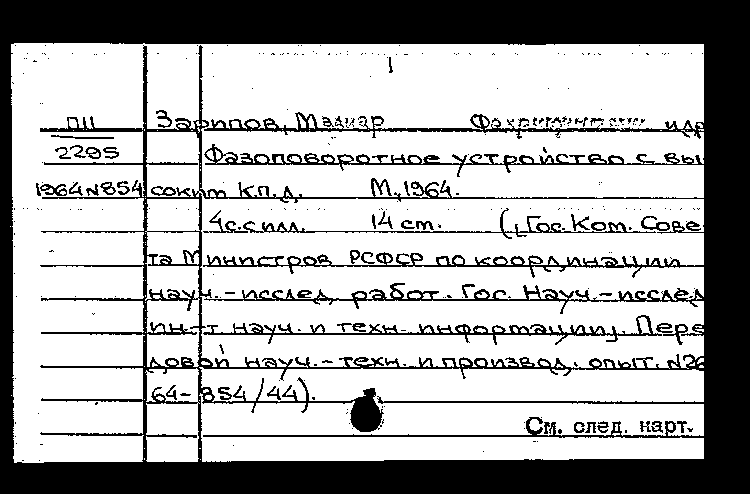 ПII Зарипов, Мадияр и др
2295 Фазоповоротное устройство с вы-
1964 N 854 соким К.п.д. М., 1964.
4с. с илл. 14 ст. ([Гос. Ком. Сове
та Министров РСФСР по координации
науч.-исслед. работ. Гос. Науч.-исслед
ин-т науч. и техн. информации]. Пере
довой науч.-техн. и производ. опыт. N26
64-854/44).
См. след. карт.